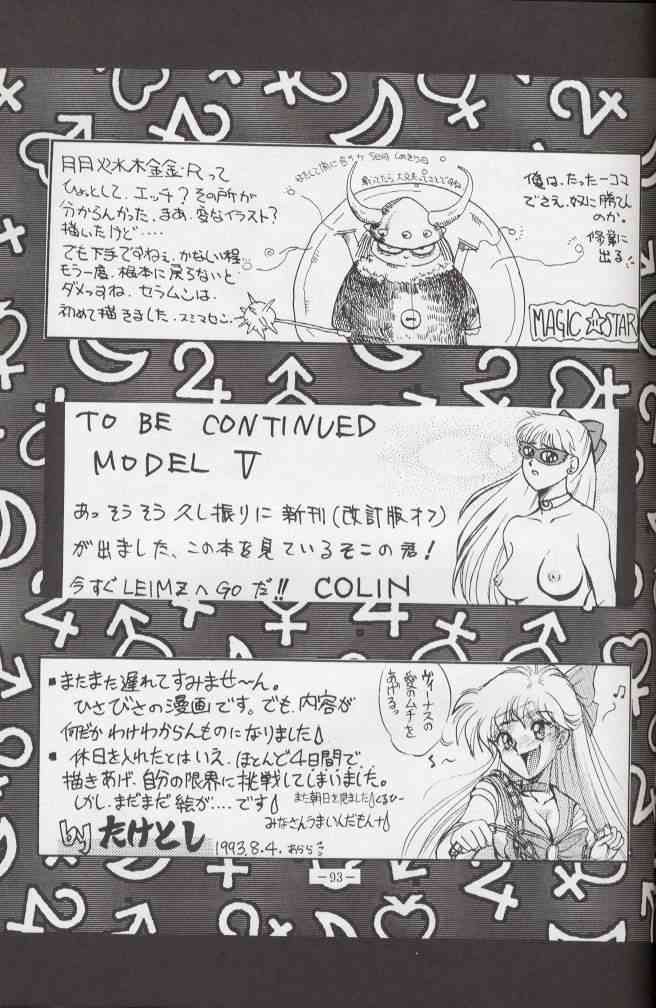 月月火水木金金・Rって
ひょっとして、エッチ？その所が
分からんかった、まあ、変なイラスト？
描いたけど‥‥
でも下手ですねぇ、かなしい程
もう一度、根本に戻らないと
ダメっすね、セラムンは、
初めて描きました、スミマセン、
俺は、たった一コマ
でさえ、奴に勝てん
のか。
修業に
出る
MAGIC STAR
TO BE CONTINUED
MODEL V
あっそうそう久し振りに新刊(改訂版オフ)
が出ました、この本を見ているそこの君！
今すぐLEIMZへGOだ!! COLIN
▪またまた遅れてすみませ〜ん。
ひさびさの漫画です。でも、内容が
何だかわけわからんものになりました♪
▪休日を入れたとはいえ、ほとんど4日間で
描きあげ、自分の限界に挑戦してしまいました。
しかし、まだまだ絵が‥‥です♪
また朝日を見ました♪くるひー
みなさんうまいんだもんナ♪
by たけとし
1993.8.4.
ヴィーナスの
愛のムチを
あげるっ
－93－